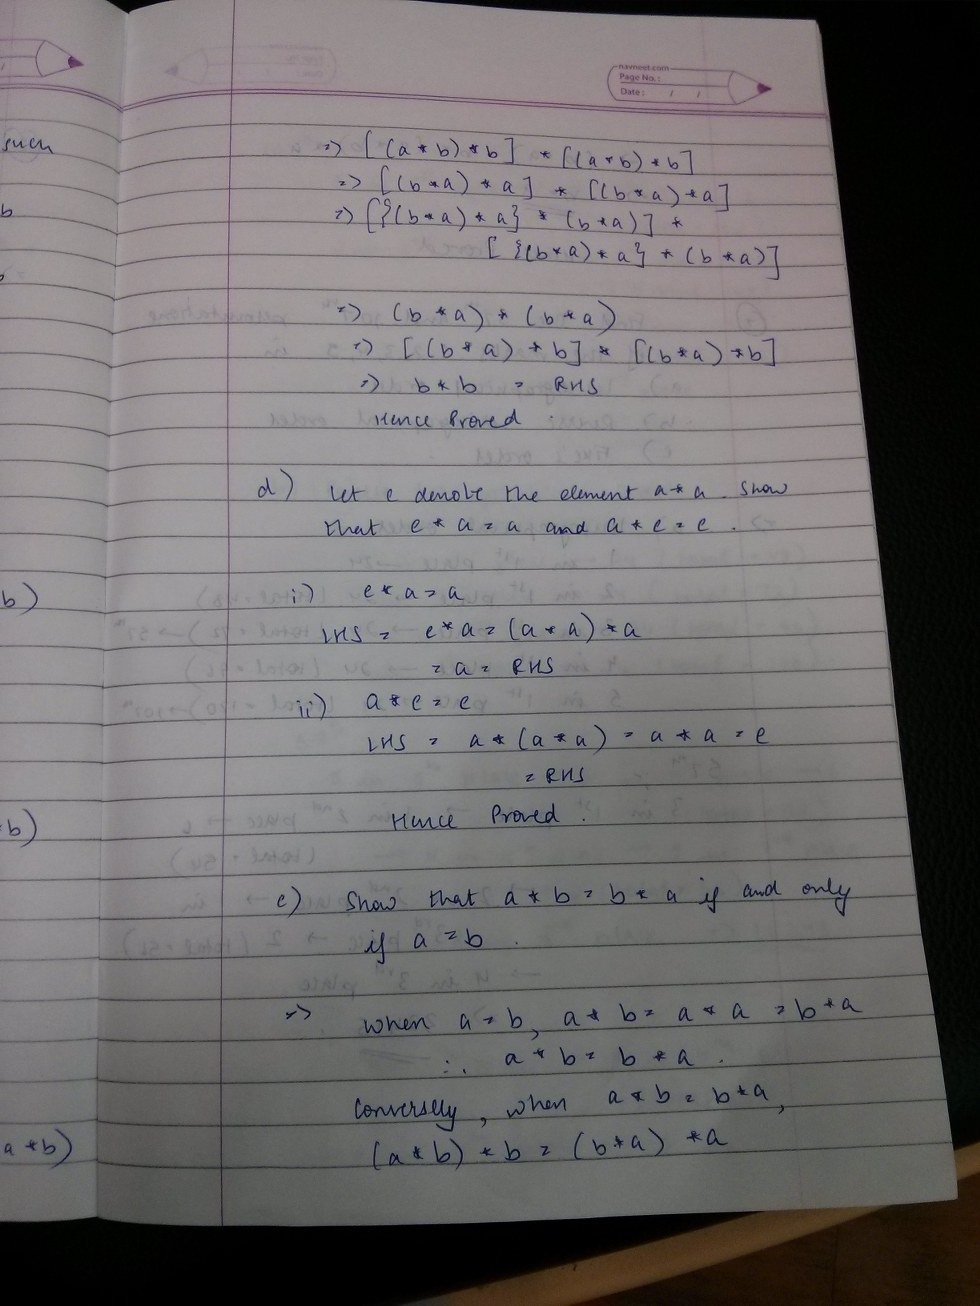 navneet.com
Page No.:
Date: / /
such
b
=> [(a * b) * b] * [(a * b) * b]
=> [(b * a) * a] * [(b * a) * a]
=> [{(b * a) * a} * (b * a)] *
[{(b * a) * a} * (b * a)]
=> (b * a) * (b * a)
=> [(b * a) * b] * [(b * a) * b]
=> b * b = RHS
Hence Proved.
d) Let e denote the element a * a. Show
that e * a = a and a * e = e.
b)
i) e * a = a
LHS = e * a = (a * a) * a
= a = RHS
ii) a * e = e
LHS = a * (a * a) = a * a = e
= RHS
b)
Hence Proved.
e) Show that a * b = b * a if and only
if a = b.
=> when a = b, a * b = a * a = b * a
∴ a * b = b * a.
Conversely, when a * b = b * a,
a * b)
(a * b) * b = (b * a) * a